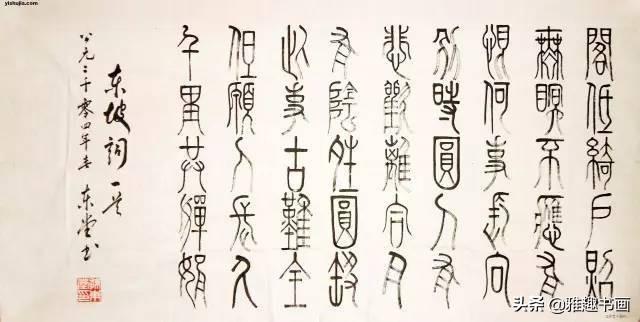 yishujia.com
閣低綺戶照
無眠不應有
恨何事長向
別時圓人有
悲歡離合月
有陰晴圓缺
此事古難全
但願人長久
千里共嬋娟
东坡词一首
公元二千零四年春 东堂书
头条 @雅趣书画